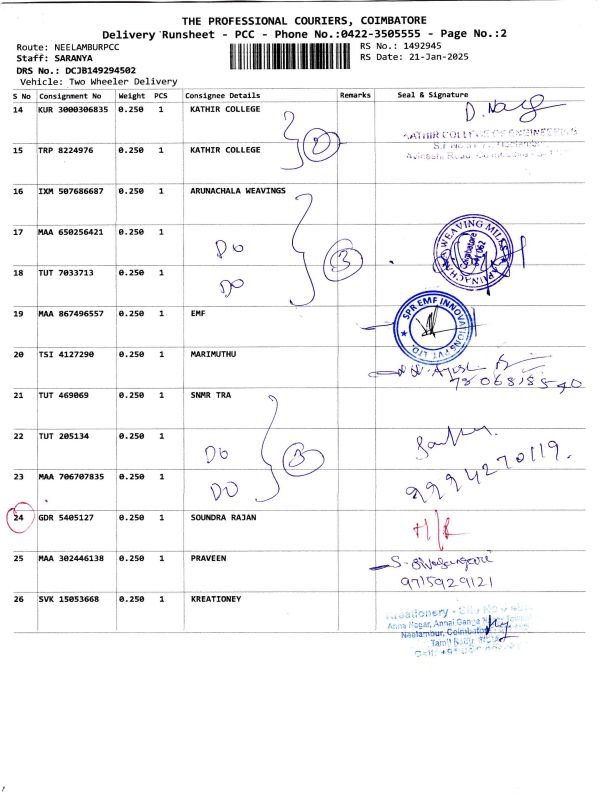 THE PROFESSIONAL COURIERS, COIMBATORE
Delivery Runsheet - PCC - Phone No.:0422-3505555 - Page No.:2
Route: NEELAMBURPCC
RS No.: 1492945
Staff: SARANYA
RS Date: 21-Jan-2025
DRS No.: DCJB149294502
Vehicle: Two Wheeler Delivery
S No Consignment No Weight PCS Consignee Details Remarks Seal & Signature
14 KUR 3000306835 0.250 1 KATHIR COLLEGE
KATHIR COLLEGE OF ENGINEERING
2
15 TRP 8224976 0.250 1 KATHIR COLLEGE
16 IXM 507686687 0.250 1 ARUNACHALA WEAVINGS
17 MAA 650256421 0.250 1 DO
3
18 TUT 7033713 0.250 1 DO
WEAVING MILLS
19 MAA 867496557 0.250 1 EMF
SPR EMF INNOVATIONS PVT LTD.
20 TSI 4127290 0.250 1 MARIMUTHU
21 TUT 469069 0.250 1 SNMR TRA
22 TUT 205134 0.250 1 DO
3
9994270119.
23 MAA 706707835 0.250 1 DO
24 GDR 5405127 0.250 1 SOUNDRA RAJAN
25 MAA 302446138 0.250 1 PRAVEEN
9715929121
26 SVK 15053668 0.250 1 KREATIONEY
Anna Nagar, Annai
Neelambur, Coimbatore